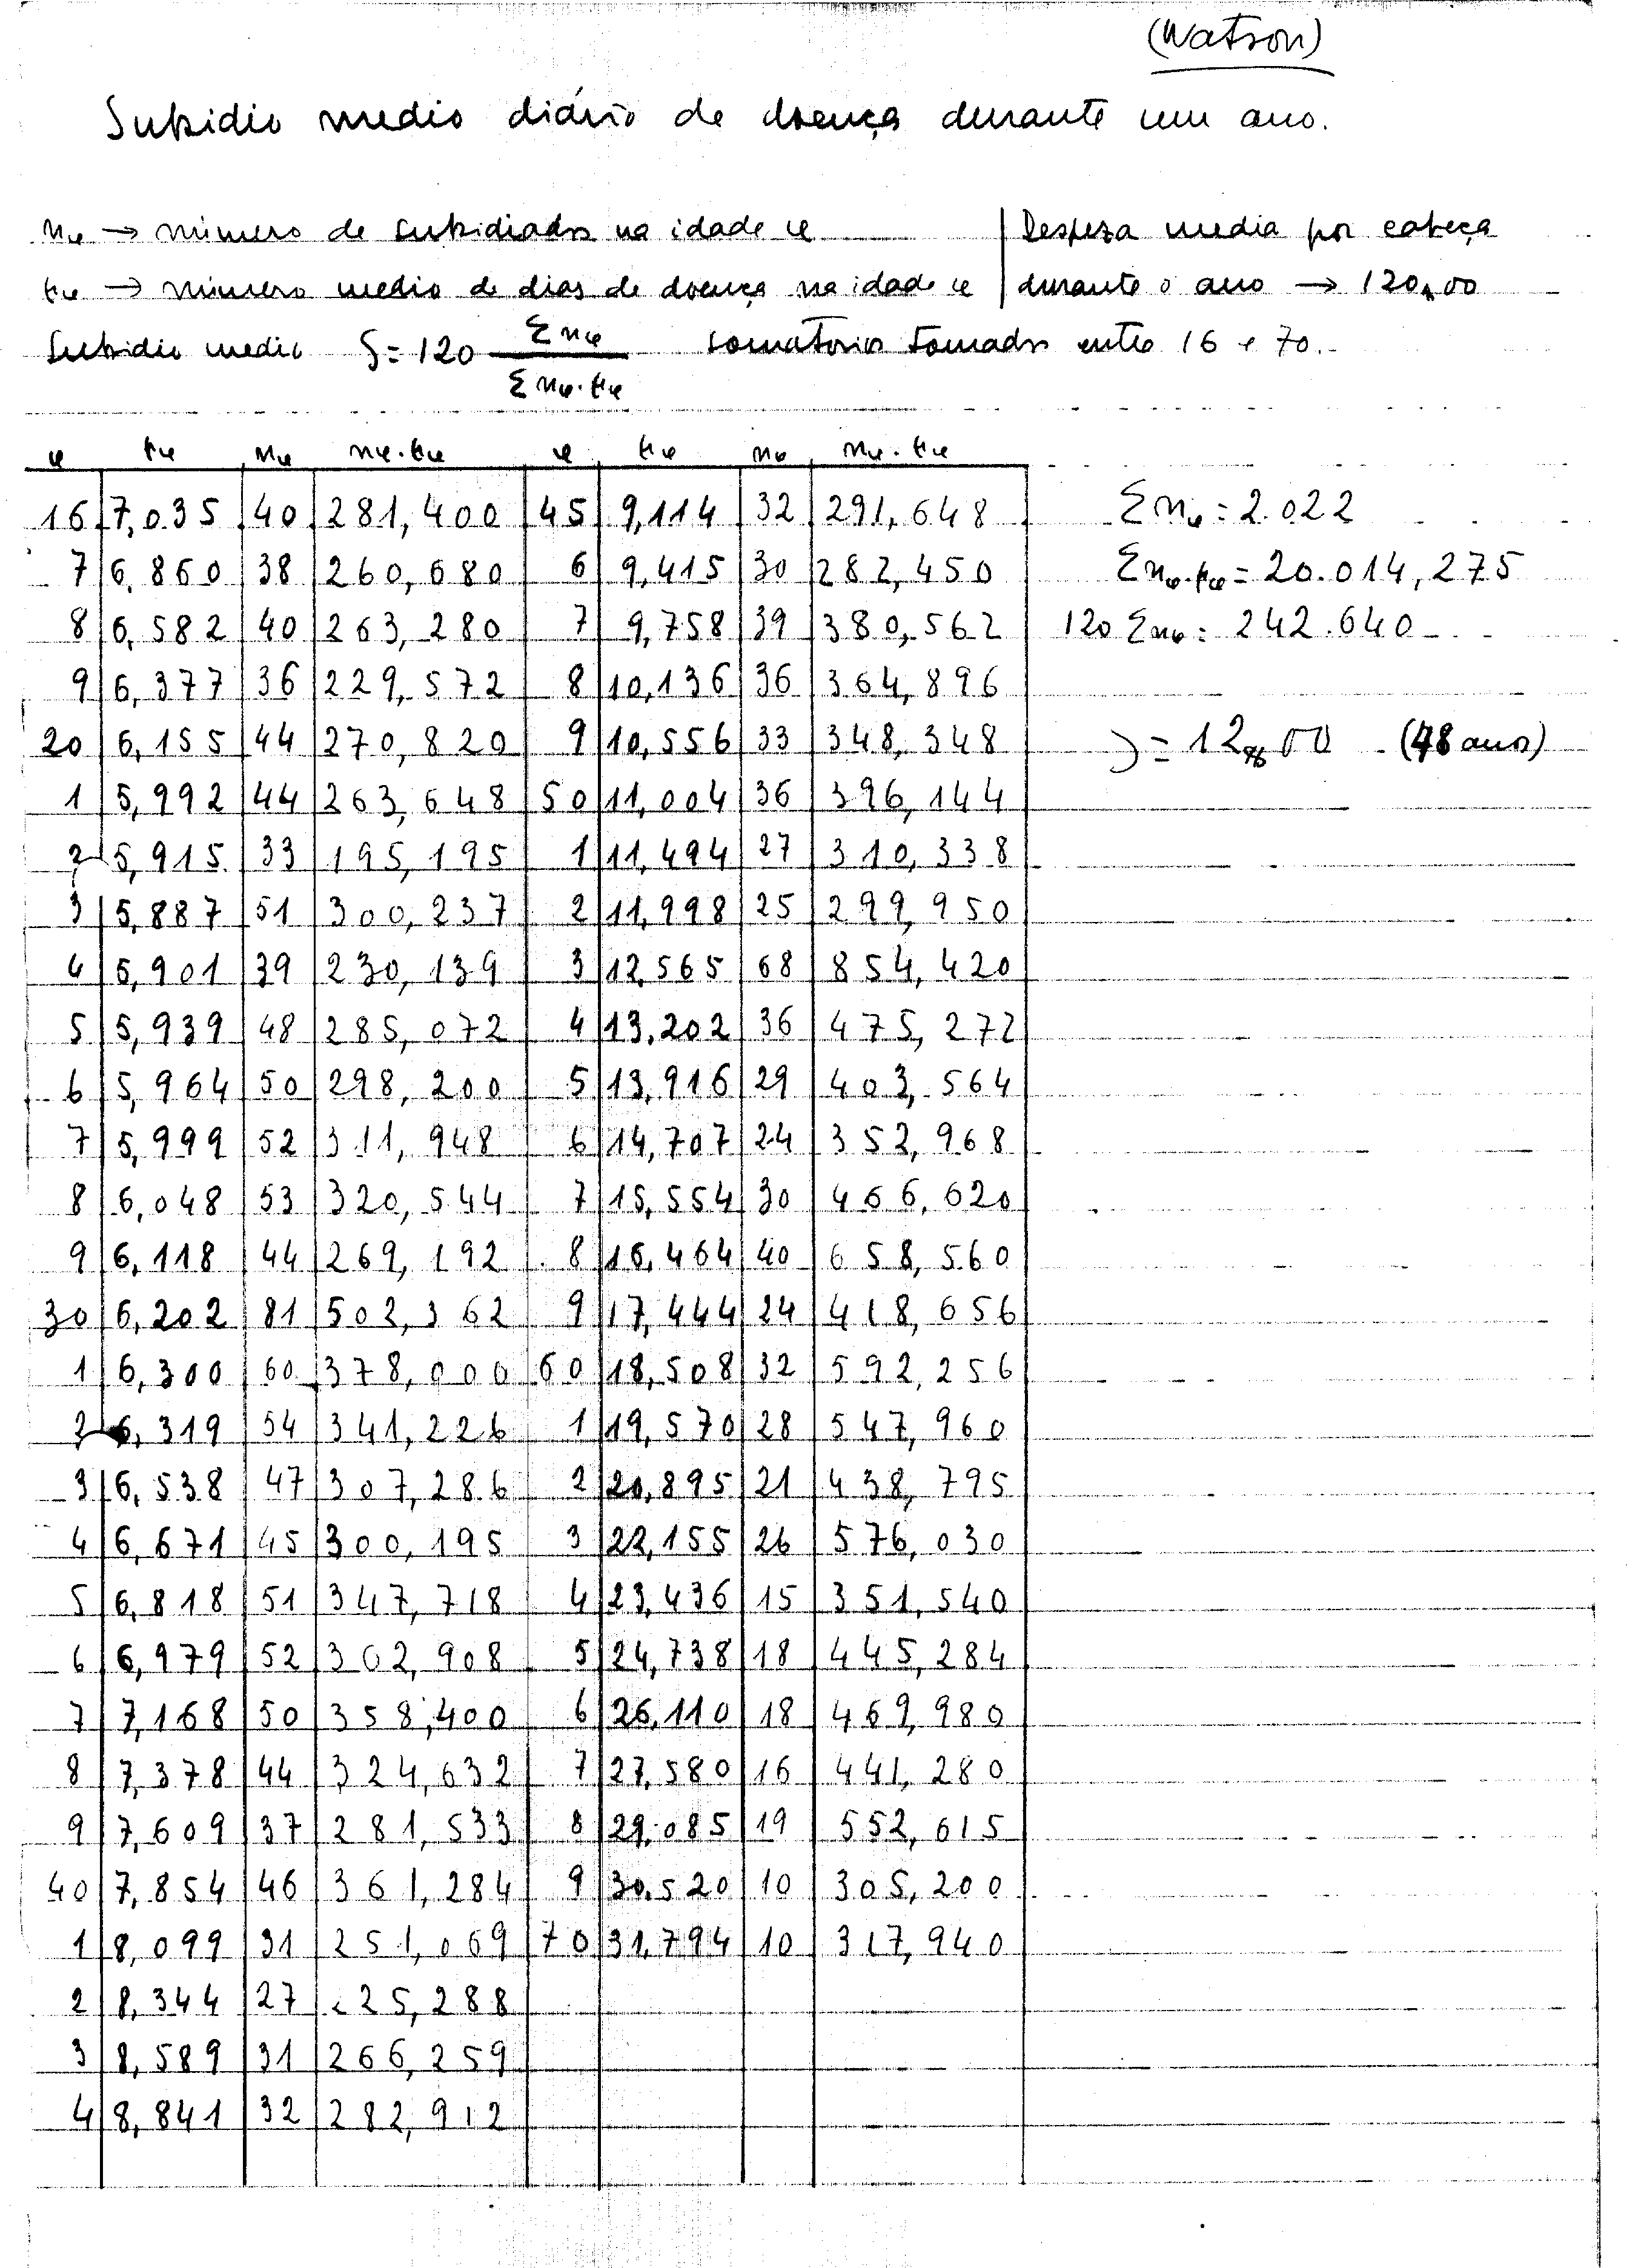 (Watson)
Subsidio medio diário de doença durante um ano.
nφ → número de subsidiados na idade φ | Despeza media por cabeça
tφ → número medio de dias de doença na idade φ | durante o ano → 120$00
Subsidio medio S = 120 Σnφ / Σnφ.tφ somatorios tomados entre 16 e 70.
φ tφ nφ nφ.tφ φ tφ nφ nφ.tφ
16 7,035 40 281,400 45 9,114 32 291,648 Σnφ = 2.022
7 6,860 38 260,680 6 9,415 30 282,450 Σnφ.tφ = 20.014,275
8 6,582 40 263,280 7 9,758 39 380,562 120 Σnφ = 242.640
9 6,377 36 229,572 8 10,136 36 364,896
20 6,155 44 270,820 9 10,556 33 348,348 S = 12$00 (48 anos)
1 5,992 44 263,648 50 11,004 36 396,144
2 5,915 33 195,195 1 11,494 27 310,338
3 5,887 51 300,237 2 11,998 25 299,950
4 5,901 39 230,139 3 12,565 68 854,420
5 5,939 48 285,072 4 13,202 36 475,272
6 5,964 50 298,200 5 13,916 29 403,564
7 5,999 52 311,948 6 14,707 24 352,968
8 6,048 53 320,544 7 15,554 30 466,620
9 6,118 44 269,192 8 16,464 40 658,560
30 6,202 81 502,362 9 17,444 24 418,656
1 6,300 60 378,000 60 18,508 32 592,256
2 6,319 54 341,226 1 19,570 28 547,960
3 6,538 47 307,286 2 20,895 21 438,795
4 6,671 45 300,195 3 22,155 26 576,030
5 6,818 51 347,718 4 23,436 15 351,540
6 6,979 52 362,908 5 24,738 18 445,284
7 7,168 50 358,400 6 26,110 18 469,980
8 7,378 44 324,632 7 27,580 16 441,280
9 7,609 37 281,533 8 29,085 19 552,615
40 7,854 46 361,284 9 30,520 10 305,200
1 8,099 31 251,069 70 31,794 10 317,940
2 8,344 27 225,288
3 8,589 31 266,259
4 8,841 32 282,912